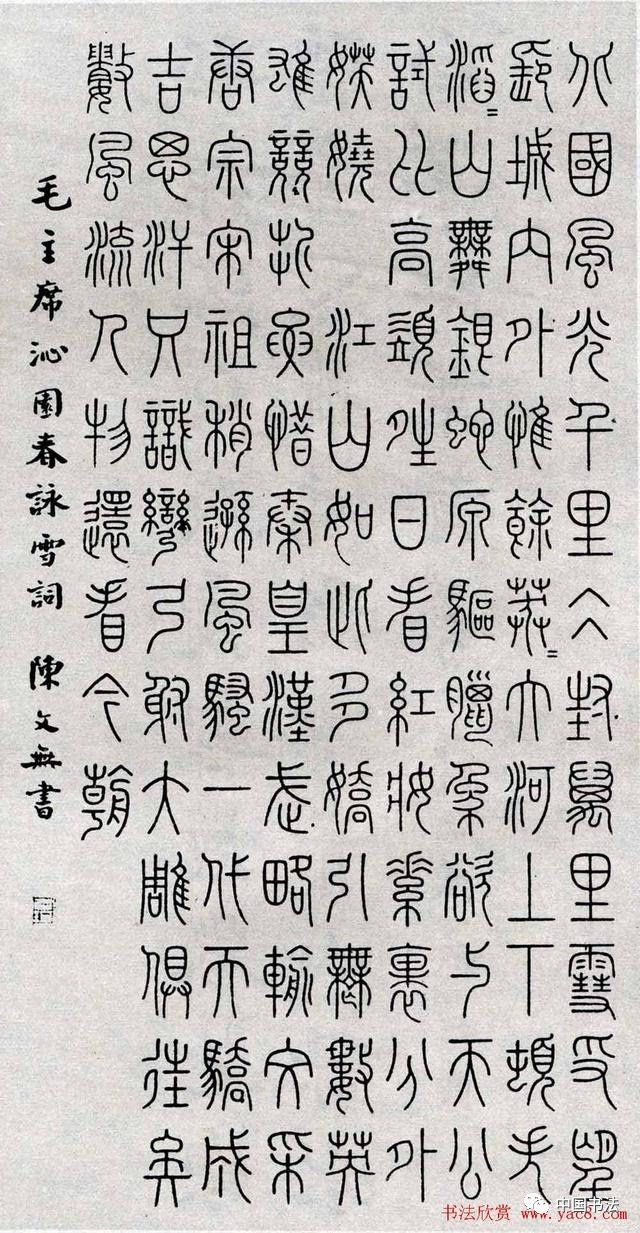 北國風光千里仌封萬里雪𠬪望
長城內外惟餘莽=大河上下頓失
滔=山舞銀蛇原驅臘象欲与天公
試比高須晴日看紅妝素裹分外
媄嬈 江山如此多嬌引無數英
雄競折要惜秦皇漢武略輸文采
唐宗宋祖稍遜風騷一代天驕成
吉思汗只識彎弓射大雕俱往矣
數風流人物還看今朝
毛主席沁園春詠雪詞 陳文無書
中国书法
书法欣赏 www.yac8.com